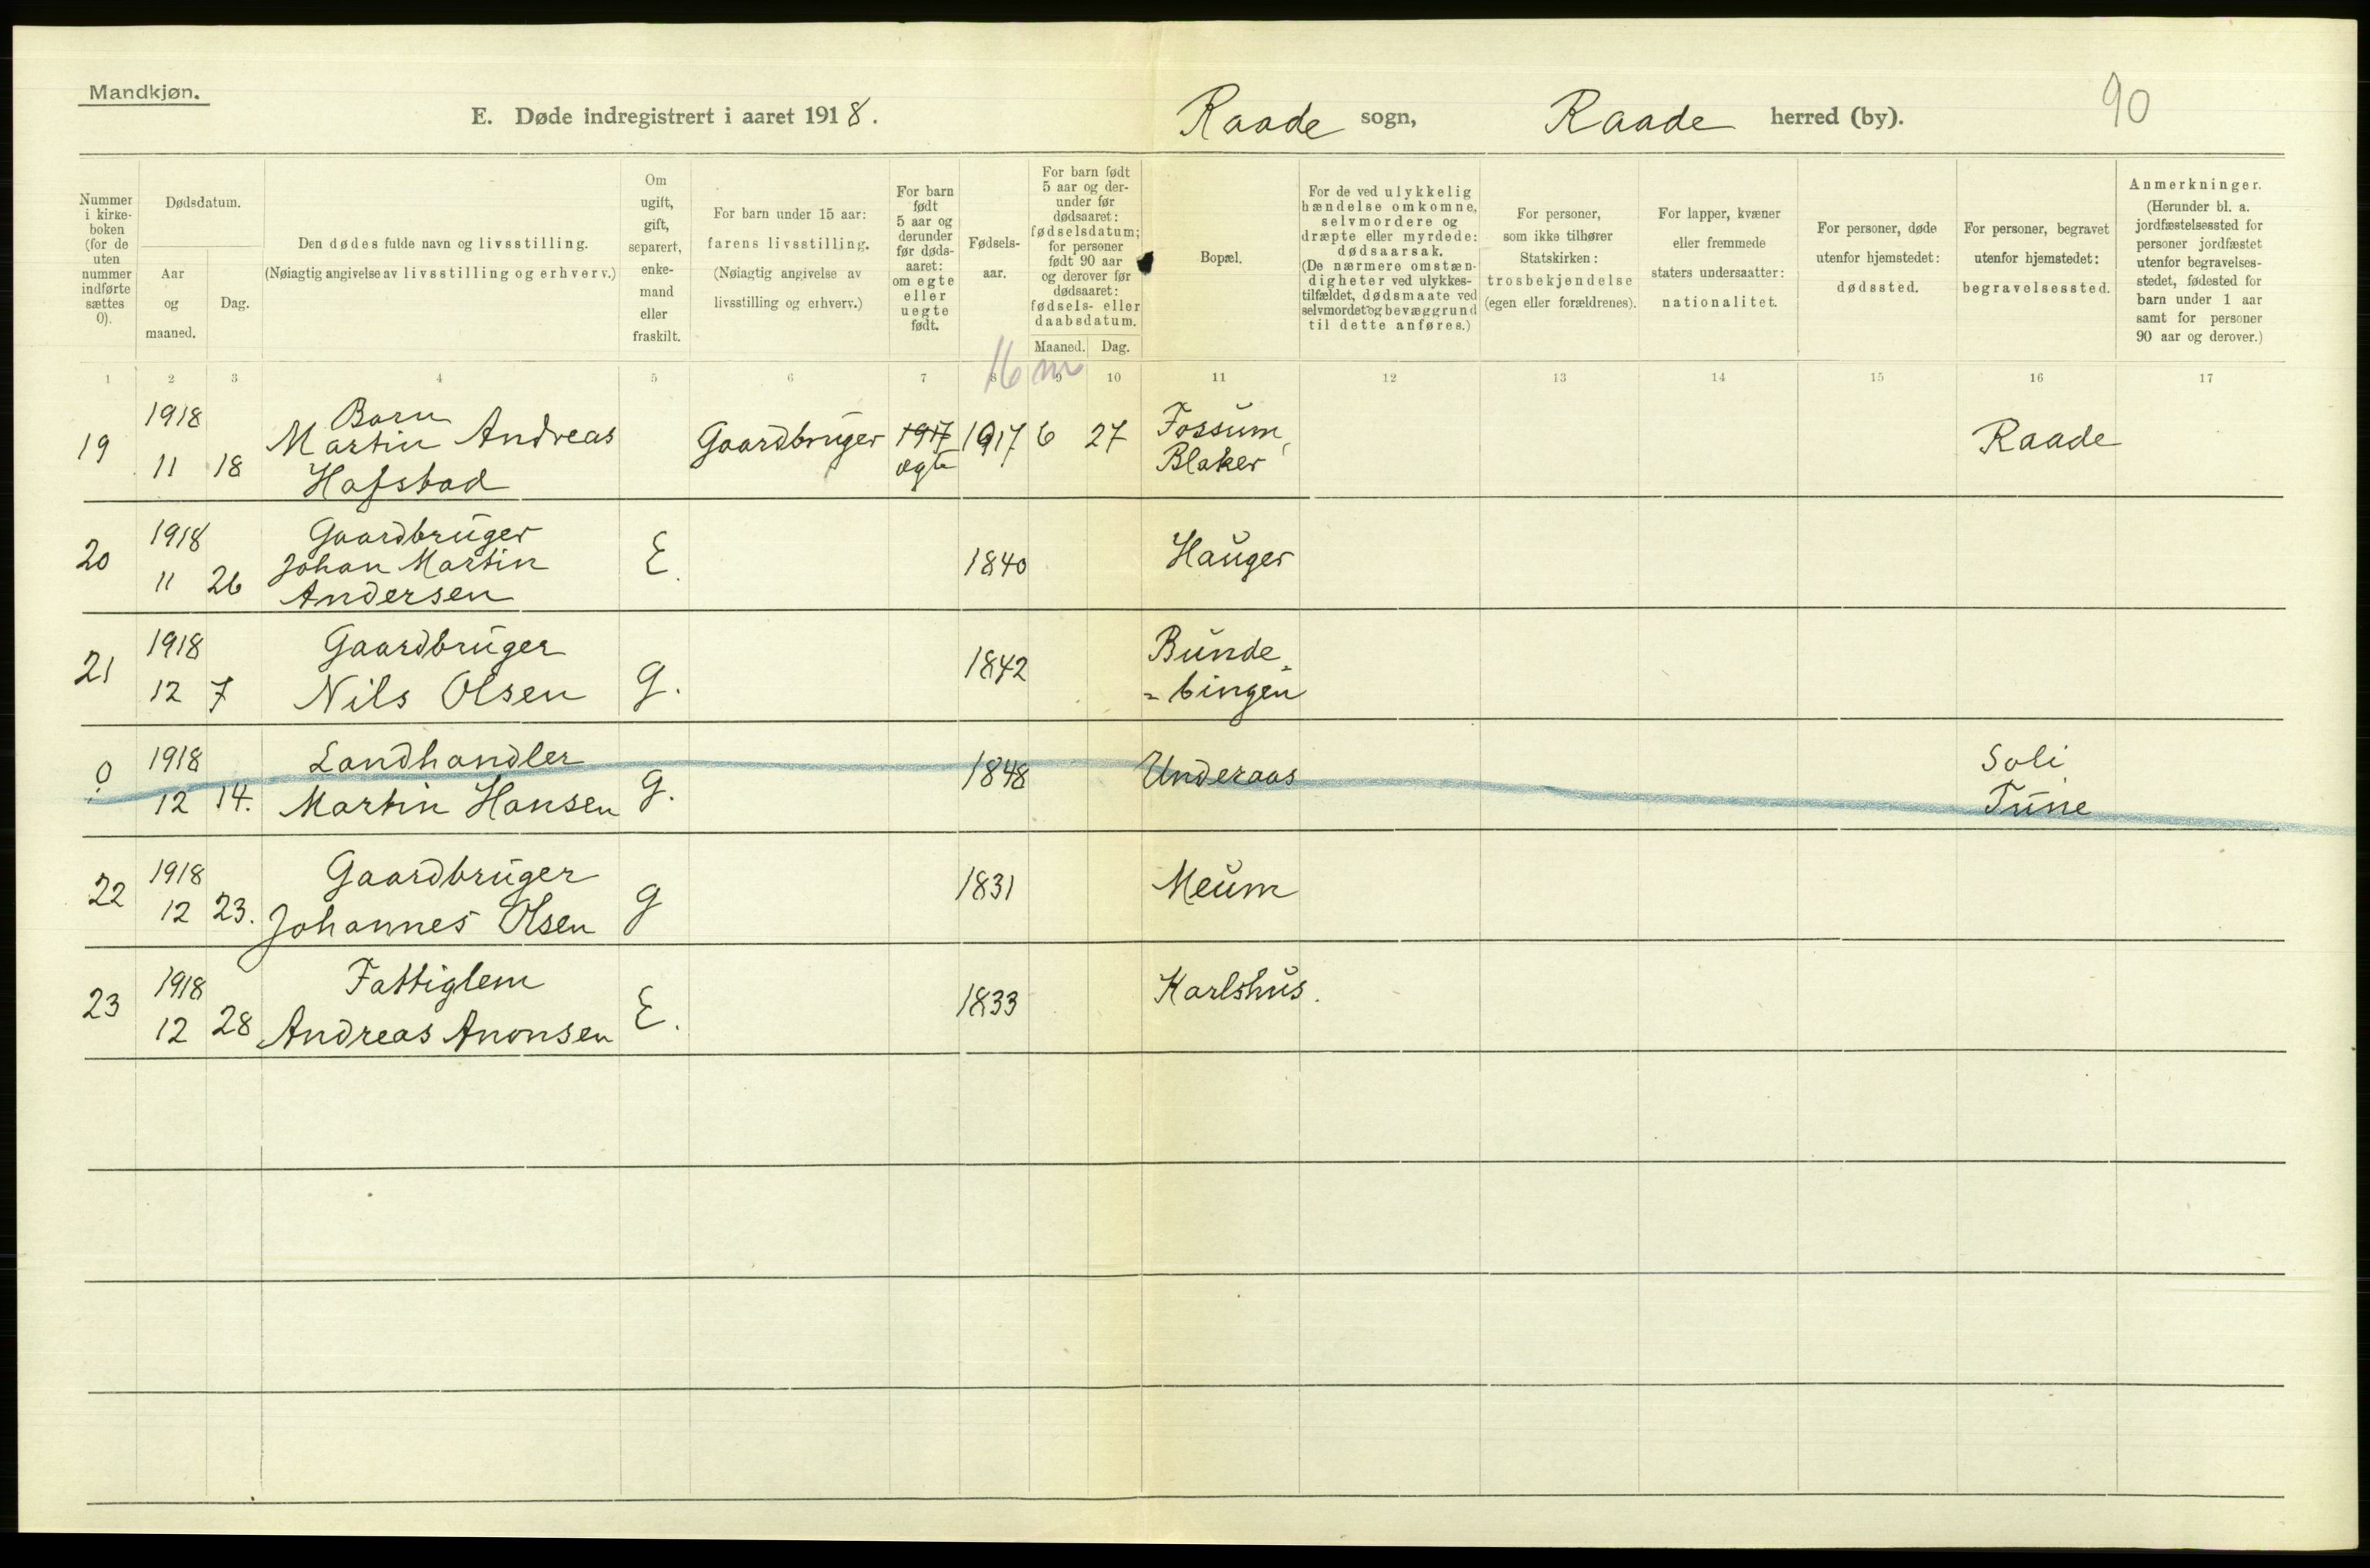 Mandkjøn.
E. Døde indregistrert i aaret 1918.
Raade sogn, Raade herred (by).
90
Nummer i kirke-boken (for de uten nummer indførte sættes 0).
Dødsdatum.
Aar og maaned.
Dag.
Den dødes fulde navn og livsstilling.
(Nøiagtig angivelse av livsstilling og erhverv.)
Om ugift, gift, separert, enke-mand eller fraskilt.
For barn under 15 aar:
farens livsstilling.
(Nøiagtig angivelse av livsstilling og erhverv.)
For barn født 5 aar og derunder før døds-aaret: om egte eller uegte født.
Fødsels-aar.
For barn født 5 aar og der-under før dødsaaret: fødselsdatum; for personer født 90 aar og derover før dødsaaret: fødsels- eller daabsdatum.
Maaned.
Dag.
Bopæl.
For de ved ulykkelig hændelse omkomne, selvmordere og dræpte eller myrdede: dødsaarsak.
(De nærmere omstæn-digheter ved ulykkes-tilfældet, dødsmaate ved selvmordet og bevæggrund til dette anføres.)
For personer, som ikke tilhører Statskirken: trosbekjendelse (egen eller forældrenes).
For lapper, kvæner eller fremmede staters undersaatter: nationalitet.
For personer, døde utenfor hjemstedet: dødssted.
For personer, begravet utenfor hjemstedet: begravelsessted.
Anmerkninger.
(Herunder bl. a. jordfæstelsessted for personer jordfæstet utenfor begravelses-stedet, fødested for barn under 1 aar samt for personer 90 aar og derover.)
1 2 3 4 5 6 7 8 9 10 11 12 13 14 15 16 17
16 m
19 1918 11 18
Barn
Martin Andreas
Hafstad
Gaardbruger 1917 egte 1917 6 27
Fossum,
Blaker
Raade
20 1918 11 26
Gaardbruger
Johan Martin
Andersen
E. 1840 Hauger
21 1918 12 7
Gaardbruger
Nils Olsen
g. 1842
Bunde=
=bingen
0 1918 12 14.
Landhandler
Martin Hansen
g. 1848 Underaas
Soli
Tune
22 1918 12 23.
Gaardbruger
Johannes Olsen
g 1831 Meum
23 1918 12 28
Fattiglem
Andreas Anonsen
E. 1833 Karlshus.